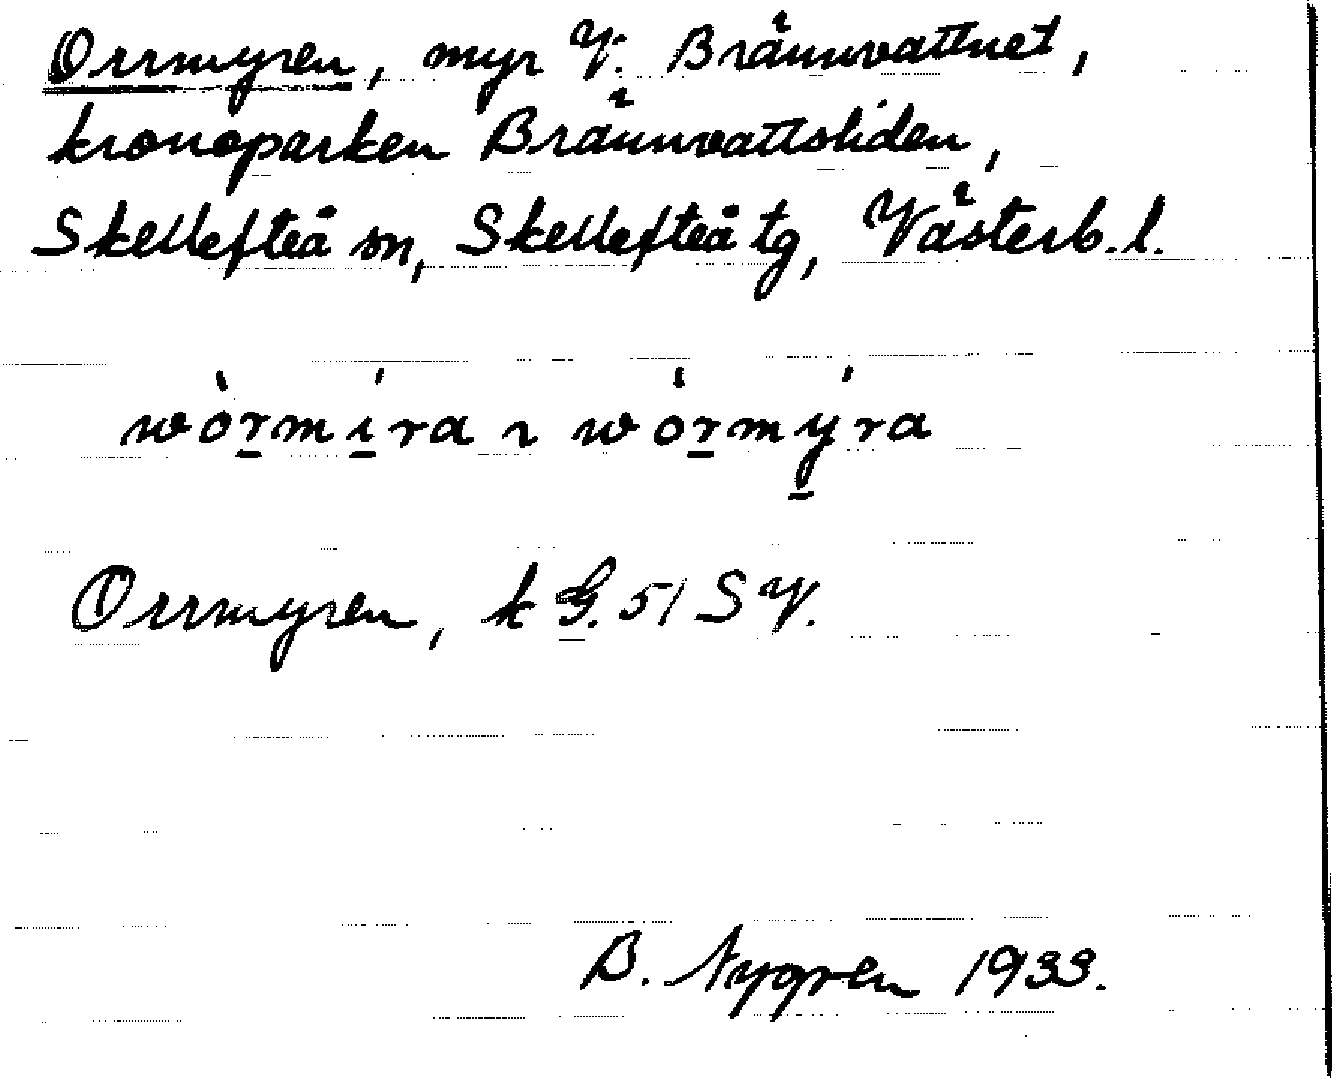 Orrmyren, myr V. Brännvattnet,
kronoparken Brännvattsliden,
Skellefteå sn, Skellefteå tg, Västerb. l.
wòrmíra ı wòrmýra
Orrmyren, k G. 51 SV.
B. Nygren 1933.